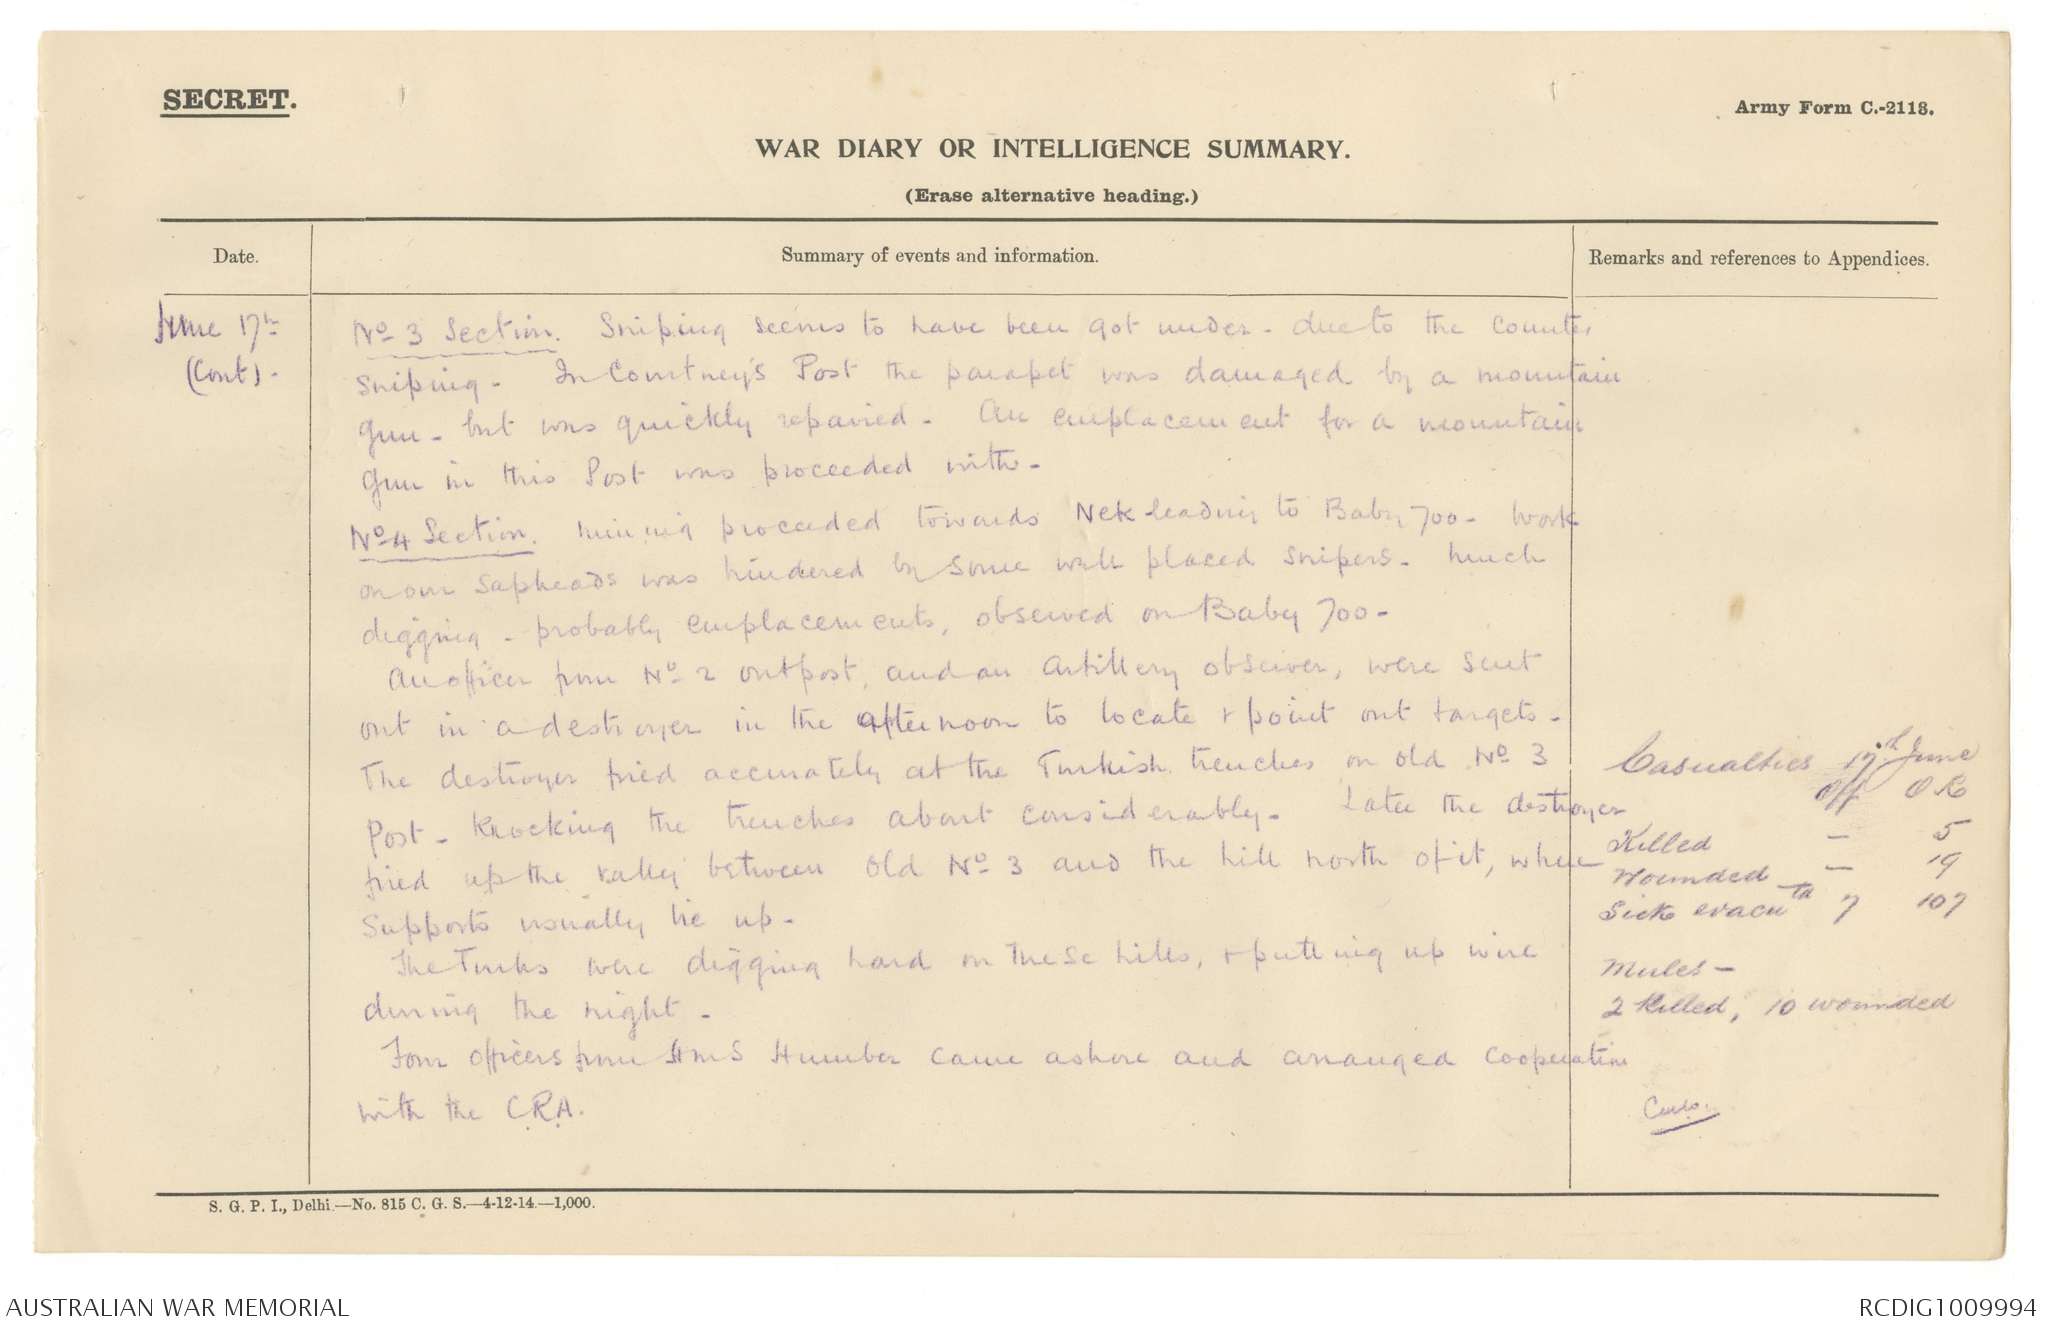 SECRET.
Army Form C.-2118.
WAR DIARY OR INTELLIGENCE SUMMARY.
(Erase alternative heading.)
Date.
Summary of events and information.
Remarks and references to Appendices.
June 17th
(Cont).
No 3 Section. Sniping seems to have been got under - due to the counter
sniping - In Courtney's Post the parapet was damaged by a mountain
gun - but was quickly repaired - An emplacement for a mountain
gun in this Post was proceeded with -
No 4 Section. Mining proceeded towards Nek leading to Baby 700 - Work
on our sapheads was hindered by some well placed snipers - Much
digging - probably emplacements, observed on Baby 700 -
An officer from No 2 outpost, and an Artillery observer, were sent
out in a destroyer in the afternoon to locate + point out targets -
The destroyer fired accurately at the Turkish trenches on old No 3
Post - knocking the trenches about considerably - Later the destroyer
fired up the valley between Old No 3 and the hill north of it, where
supports usually lie up -
The Turks were digging hard on these hills, + putting up wire
during the night -
Four officers from HMS Humber came ashore and arranged cooperation
with the C.R.A.
Casualties 17th June
Off O R
Killed - 5
Wounded - 19
Sick evacuted 7 107
Mules -
2 Killed, 10 wounded
S. G. P. I., Delhi.—No. 815 C. G. S.—4-12-14.—1,000.
AUSTRALIAN WAR MEMORIAL
RCDIG1009994